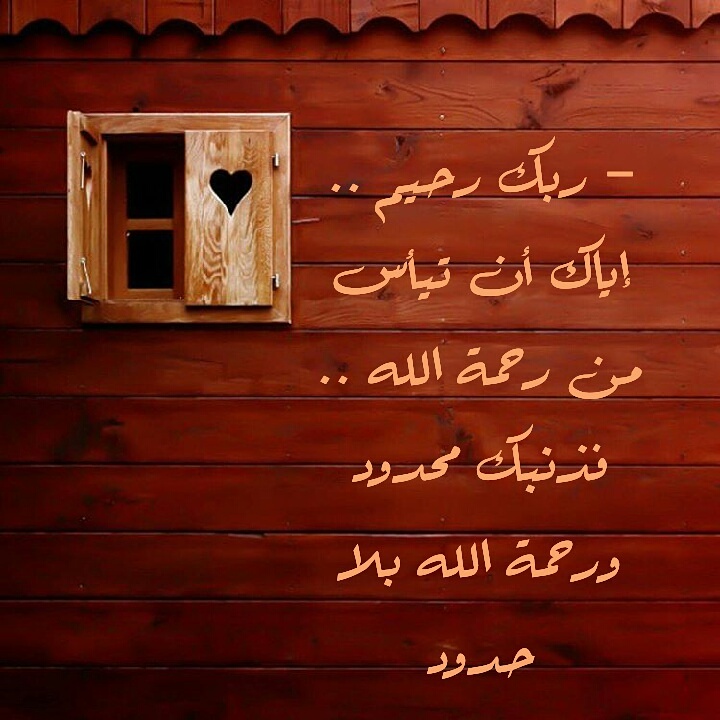 – ربك رحيم ..
إياك أن تيأس
من رحمة الله ..
فذنبك محدود
ورحمة الله بلا
حدود